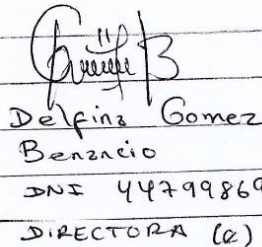 Delfina Gomez
Benancio
DNI 44799869
DIRECTORA (e)